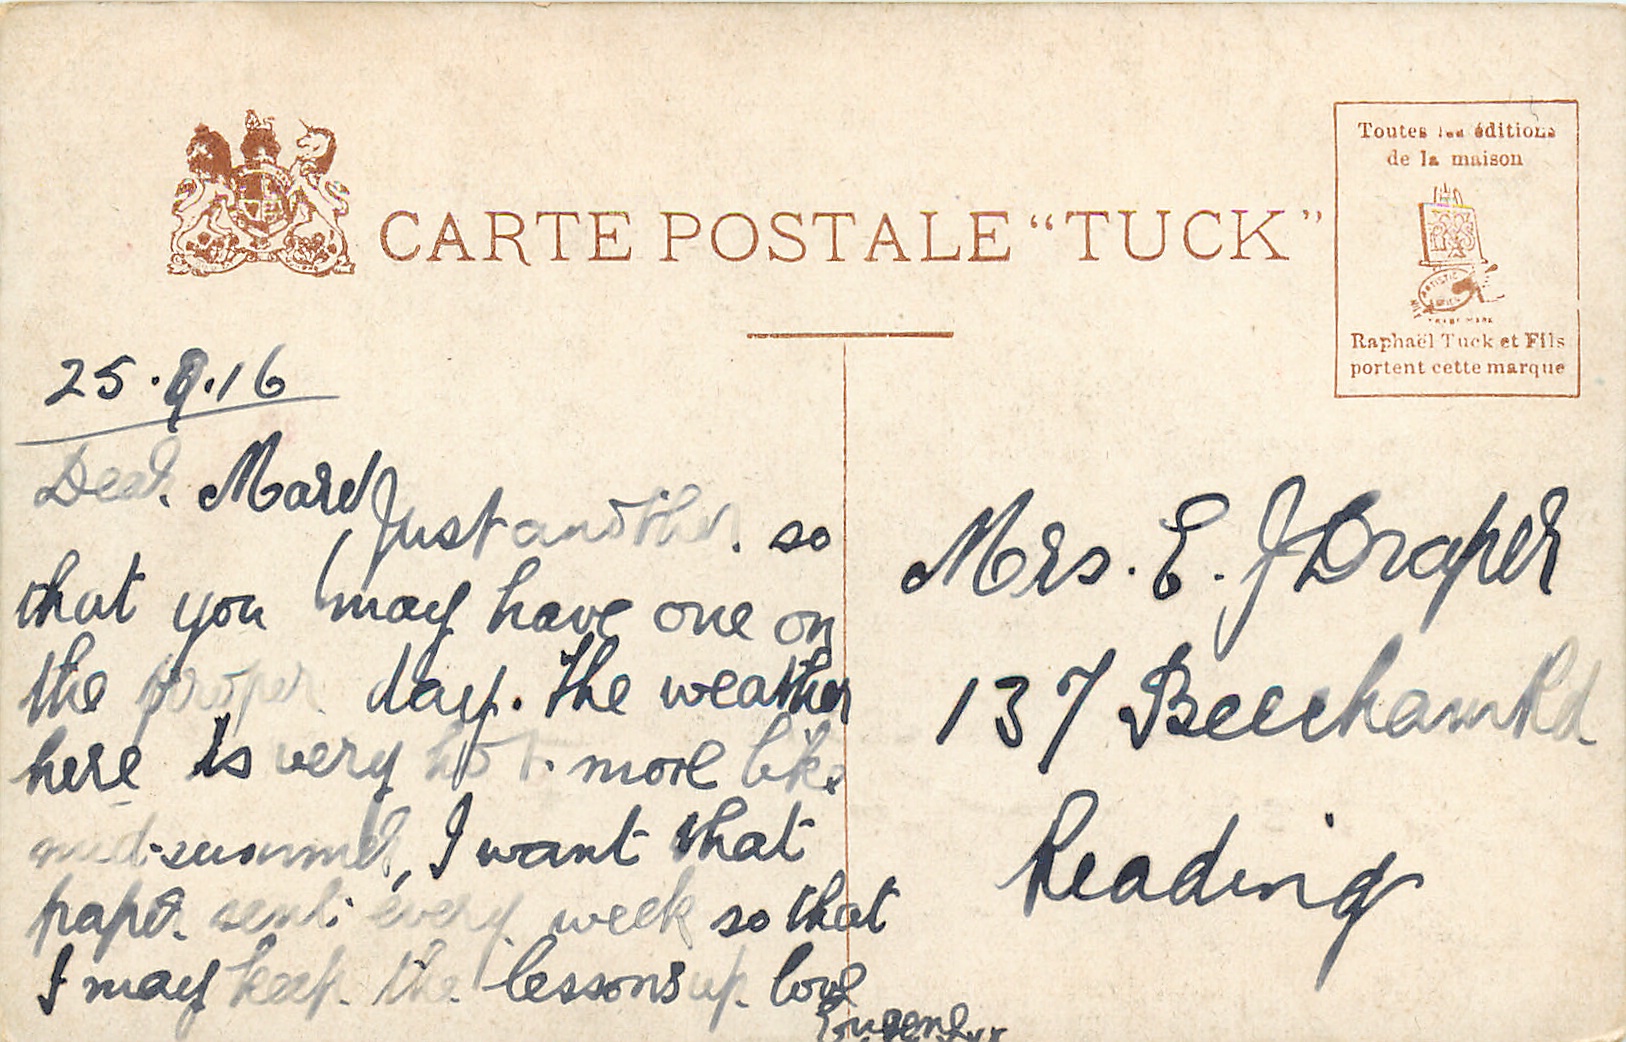 CARTE POSTALE “TUCK”
Toutes les éditions
de la maison
ARTISTIC
TRADE MARK
Raphaël Tuck et Fils
portent cette marque
25.9.16
Dear
Just another so
that you may have one on
the proper day. The weather
here is very hot. more like
mid-summer, I want that
paper sent every week so that
I may keep the lessons up. love
Mrs. E. J Draper
137 Beecham Rd
Reading